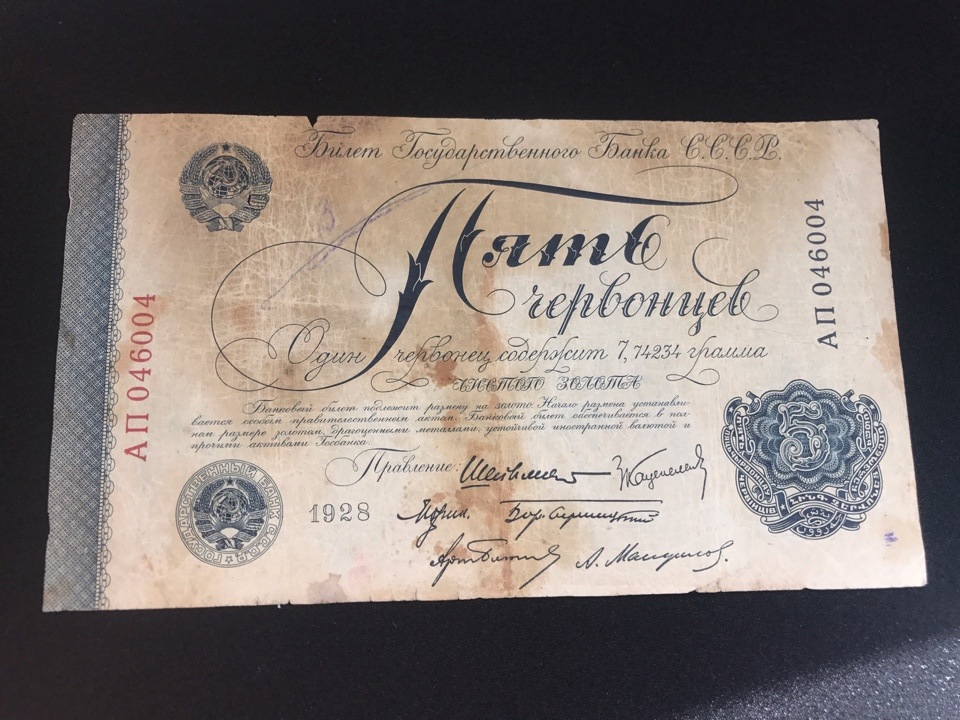 Билет Государственного Банка С.С.С.Р.
Пять
червонцев
Один червонец содержит 7,74234 грамма
чистого золота
Банковый билет подлежит размену на золото. Начало размена устанавли-
вается особым правительственным актом. Банковый билет обеспечивается в пол-
ном размере золотом, драгоценными металлами, устойчивой иностранной валютой и
прочими активами Госбанка.
Правление:
1928
АП 046004
АП 046004
ГОСУДАРСТВЕННЫЙ БАНК С.С.С.Р.
5